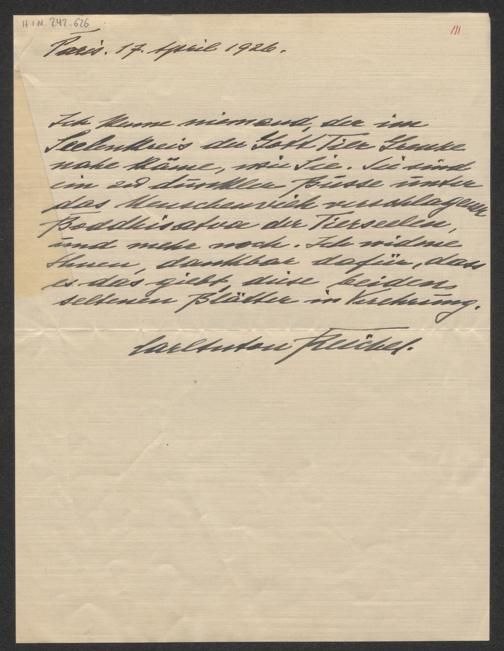 H.I.N. 242.626
III
Paris. 17. April 1926.
Ich kenne niemand, der im
Seelenkreis der Gott Tier Grenze
nahe käme, wie Sie. Sie sind
ein zu dunkler Busse unter
das Menschenvieh verschlagener
Boadhisatva der Tierseelen,
und mehr noch. Ich widme
Ihnen, dankbar dafür, dass
es das giebt, diese beiden
seltenen Blätter in Verehrung.
Carl Anton Reichel.